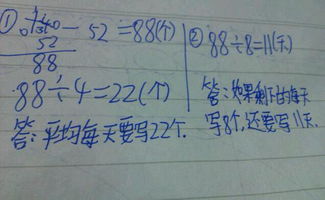 ① 140 - 52 = 88(个)
52
88
88÷4=22(个)
答:平均每天要写22个.
② 88÷8=11(天)
答:如果剩下的每天
写8个,还要写11天.